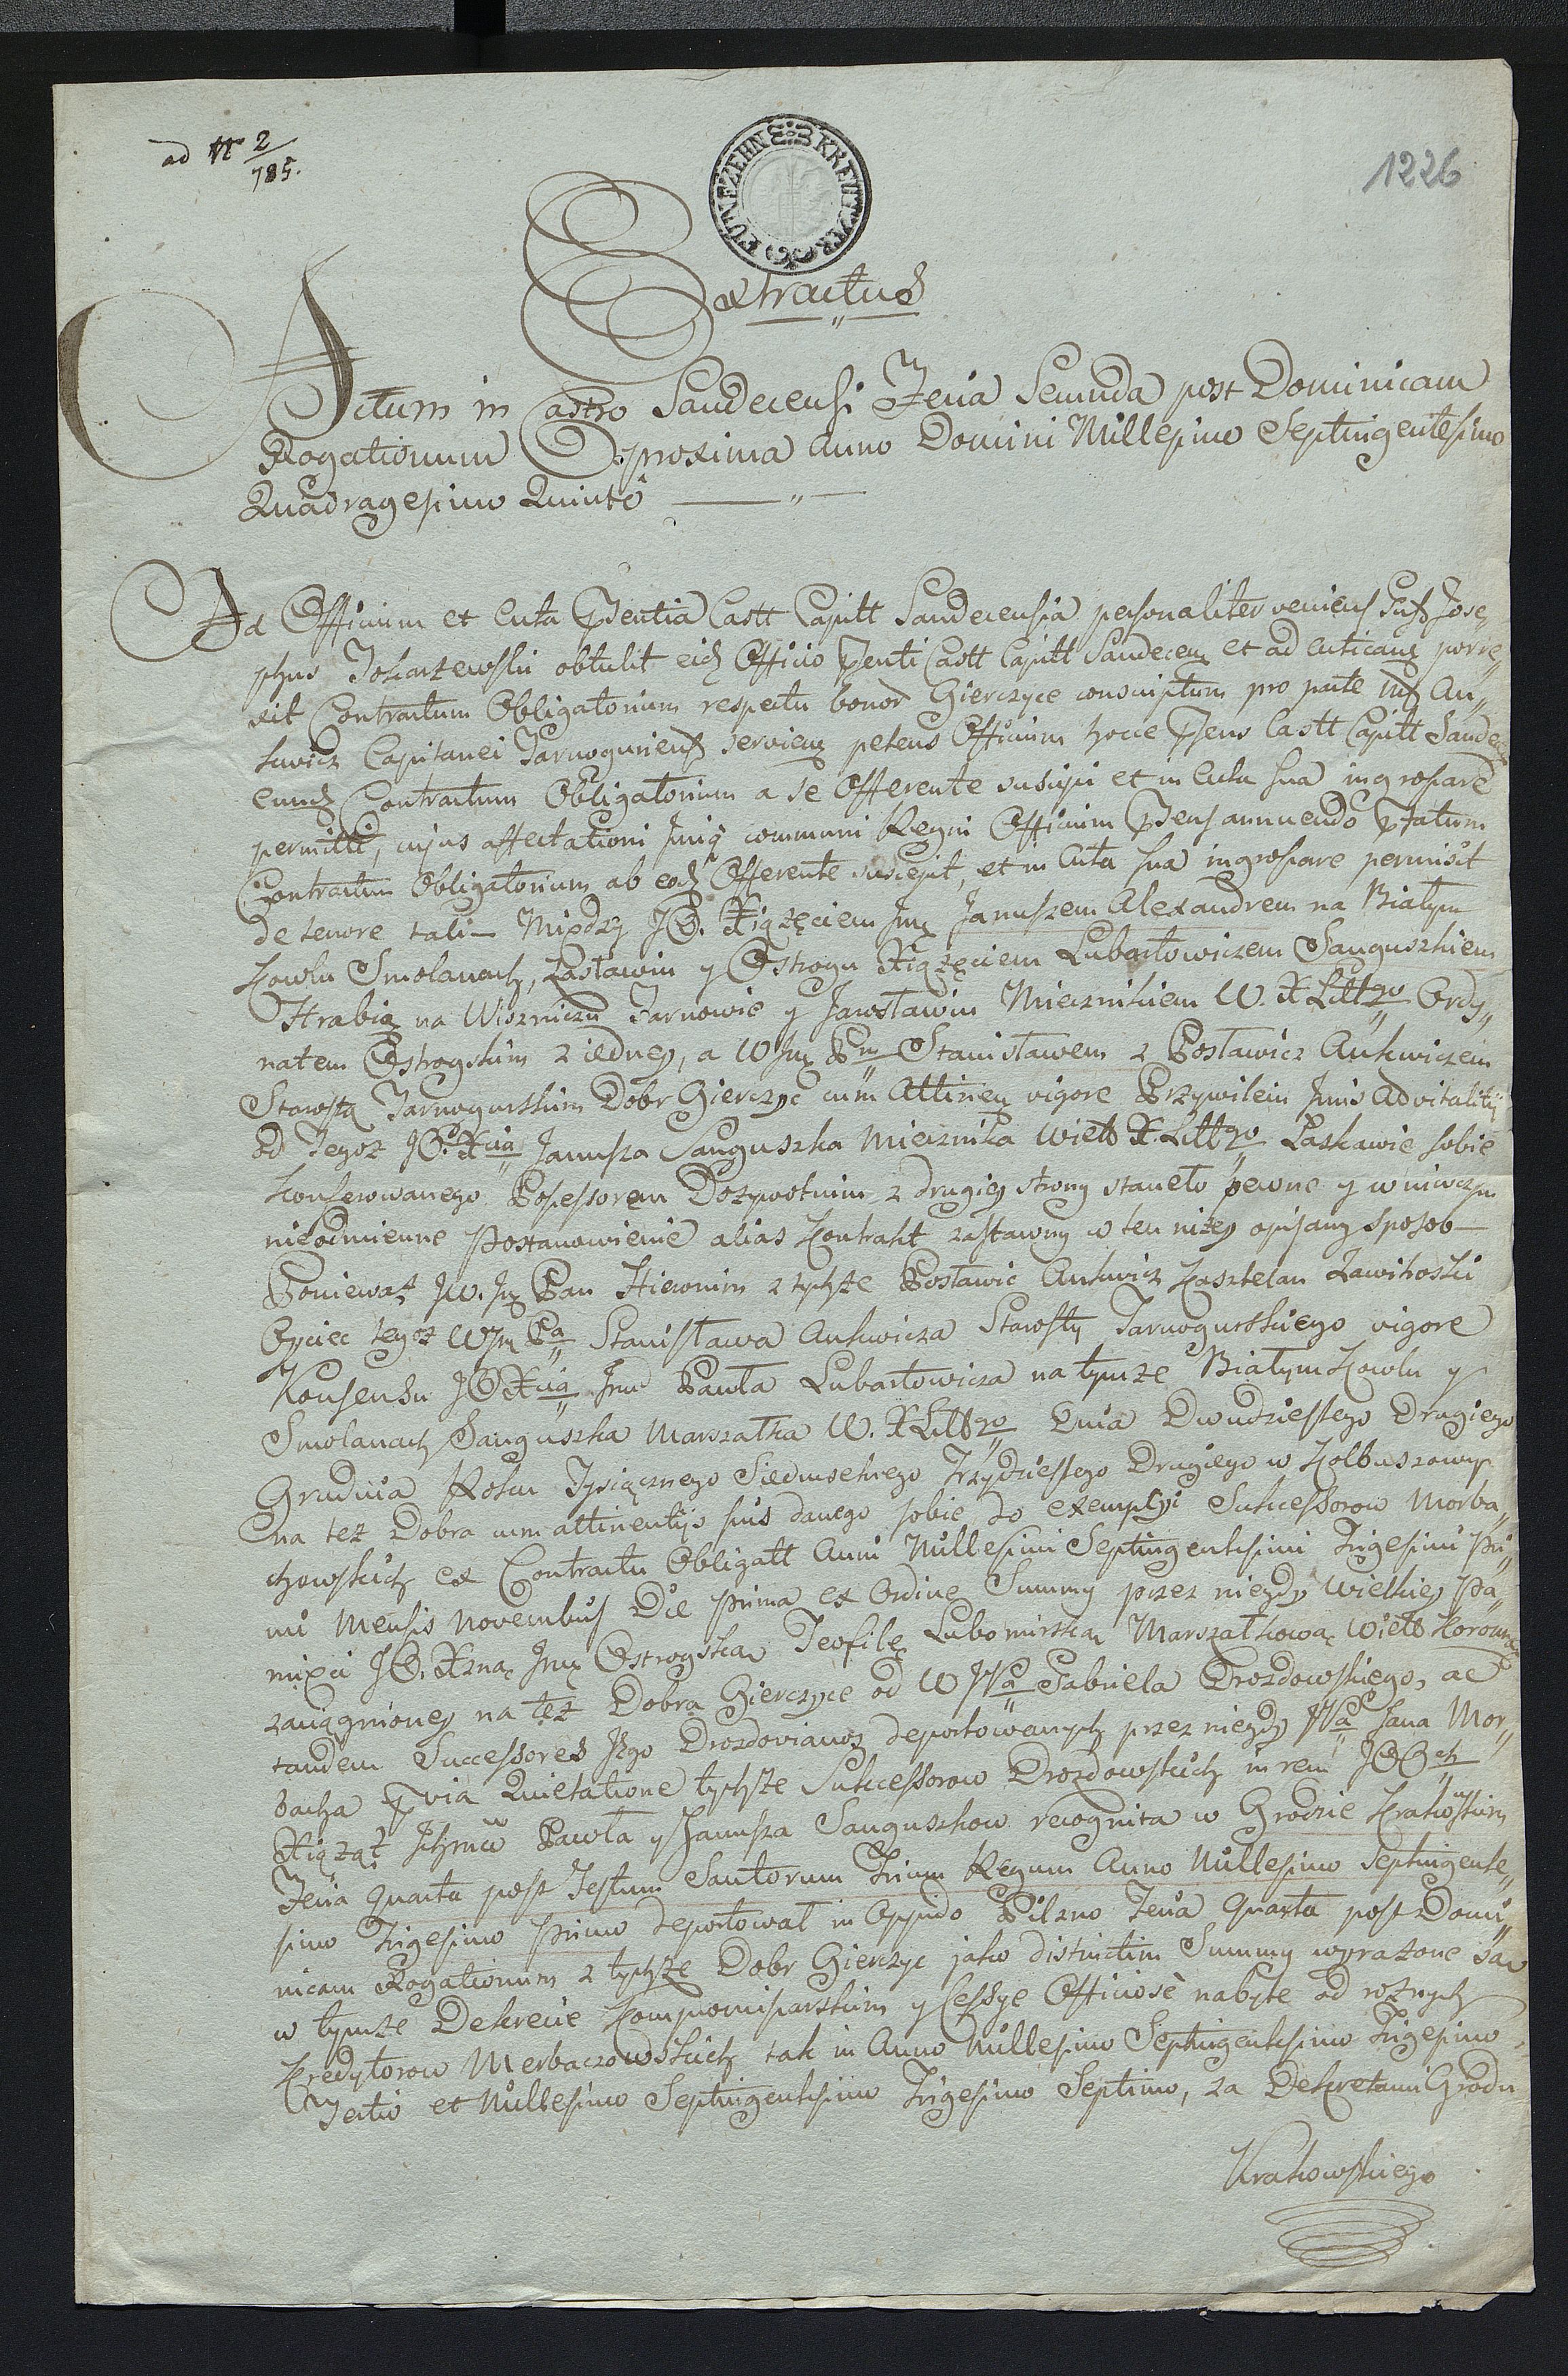 ad Nr 2/785.
1226
FÜNFZEHN KREUTZER
Extractus
Actum in Castro Sandecensi Feria Secunda post Dominicam
Rogationum proxima Anno Domini Millesimo Septingentesimo
Quadragesimo Quinto
Ad Officium et Acta Pentia Castt Capitt Sandecensia personaliter veniens Jose„
phus Tokarzewski obtulit eid Officio Penti Castt Capitt Sandecen et ad acticand porre„
xit Contractum Obligatorium respectu bonor Gierczyce conscriptum pro parte Mf An„
kwicz Capitanei Tarnoguriens servien petens Officium hocce Pens Castt Capitt Sandecen
eund Contractum Obligatorium a se Offerente suscipi et in Acta sua ingrossare
permitti, cujus affectationi Juriq communi Regni Officium Pens annuendo Ptatum
Contractum Obligatorium ab eod Offerente suscepit, et in Acta sua ingrossare permisit
de tenore tali – Między JO. Xiążęciem Jmę Januszem Alexandrem na Białym
Kowlu Smolanach, Zasławiu y Ostrogu Xiążęciem Lubartowiczem Sanguszkiem
Hrabią na Wiszniczu Tarnowie y Jarosławiu Miecznikiem W. X Littgo Ordy„
natem Ostrogskim z iedney, a WJm Pm Stanisławem z Posławic Ankwiczem
Starostą Tarnogurskim Dobr Gierczyc cum Attinen vigore Przywileiu Juris Advitalitij
od Tegoż JO. Xcia Janusza Sanguszka Miecznika Wielo X. Littgo Łaskawie sobie
konferowanego Possessorem Dożywotnim z drugiey strony staneło pewne y w niwczym
nieodmienne Postanowienie alias Kontrakt zastawny w ten niżey opisany sposob
Ponieważ JW. Jm Pan Hieronim z tychże Posławic Ankwicz Kasztelan Zawihoski
Oyciec tegoż WJm Pa Stanisława Ankwicza Starosty Tarnogurskiego vigore
Konsensu JO Xcia Jmc Pawła Lubartowicza na tymże Białym Kowlu y
Smolanach Sanguszka Marszałka W. X Littgo Dnia Dwudziestego Drugiego
Grudnia Roku Tysiącznego Siedmsetnego Trzydziestego Drugiego w Kolbuszowy
na też Dobra cum attinentijs suis danego sobie do exempcyi Sukcessorow Morba„
chowskich ex Contractu Obligatt Anni Millesimi Septingentesimi Trigesimi Pri„
mi Mensis Novembris Die Prima ex Ordine Summy przez niegdy Wielkiey Pa„
mięci JO. Xzną Jmę Ostrogską Teofilę Lubomirską Marszałkową Wielo Koronną
zaciągnioney na też Dobra Gierczyce od W JPa Gabriela Drozdowskiego, ac
tandem Successores Jego Drozdovianos deportowanych przez niegdy JPa Jana Mor„
bacha Pvia Quietatione tychże Sukcessorow Drozdowskich in rem JOOch
Xiążąt Jchmw Pawła y Janusza Sanguszkow recognita w Grodzie Krakowskim
Feria Quarta post Festum Sanctorum Trium Regum Anno Millesimo Septingente„
simo Trigesimo Primo deportował in Oppido Pilzno Feria Quarta post Domi„
nicam Rogationum z tychże Dobr Gierczyc jako distinctim Summy wyrażone są
w tymże Dekrecie Kompromissarskim y Cessye Officiose nabyte od rożnych
Kredytorow Merbaczowskich tak in Anno Millesimo Septingentesimo Trigesimo
Tertio et Millesimo Septingentesimo Trigesimo Septimo, za Dekretami Grodu
Krakowskiego